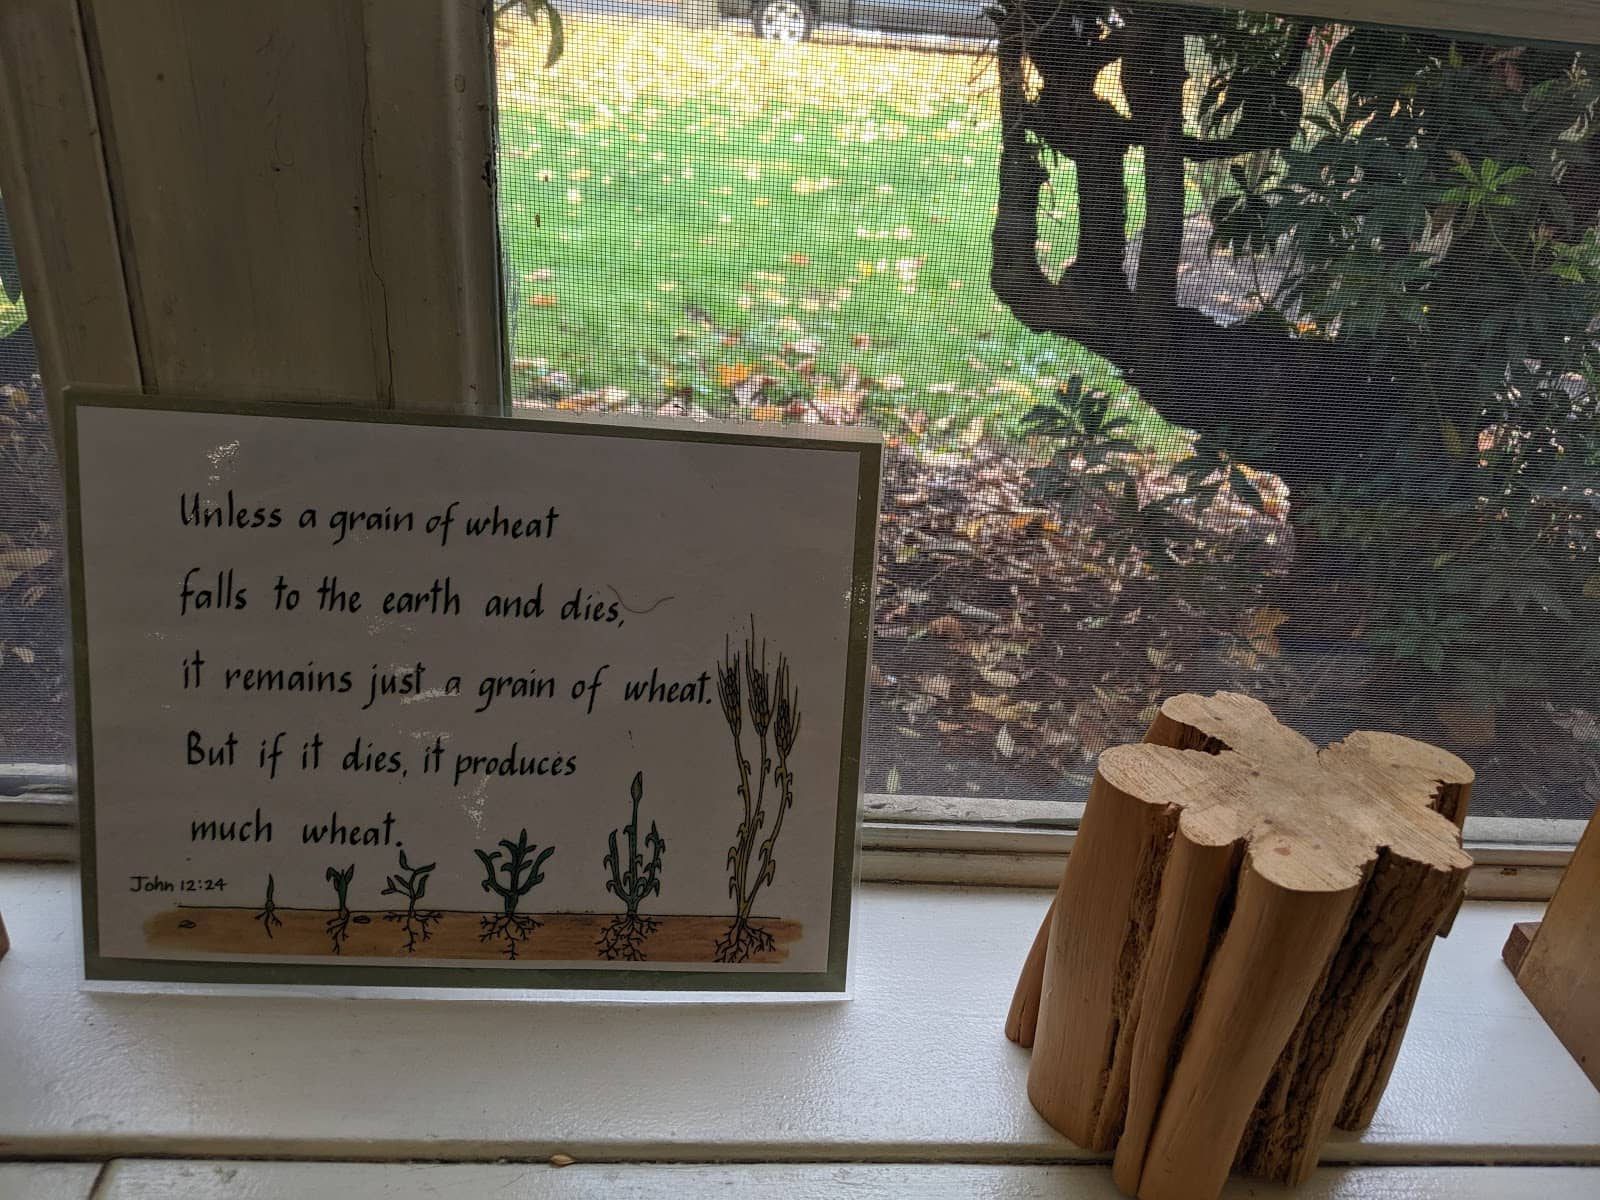 Unless a grain of wheat
falls to the earth and dies,
it remains just a grain of wheat.
But if it dies, it produces
much wheat.
John 12:24